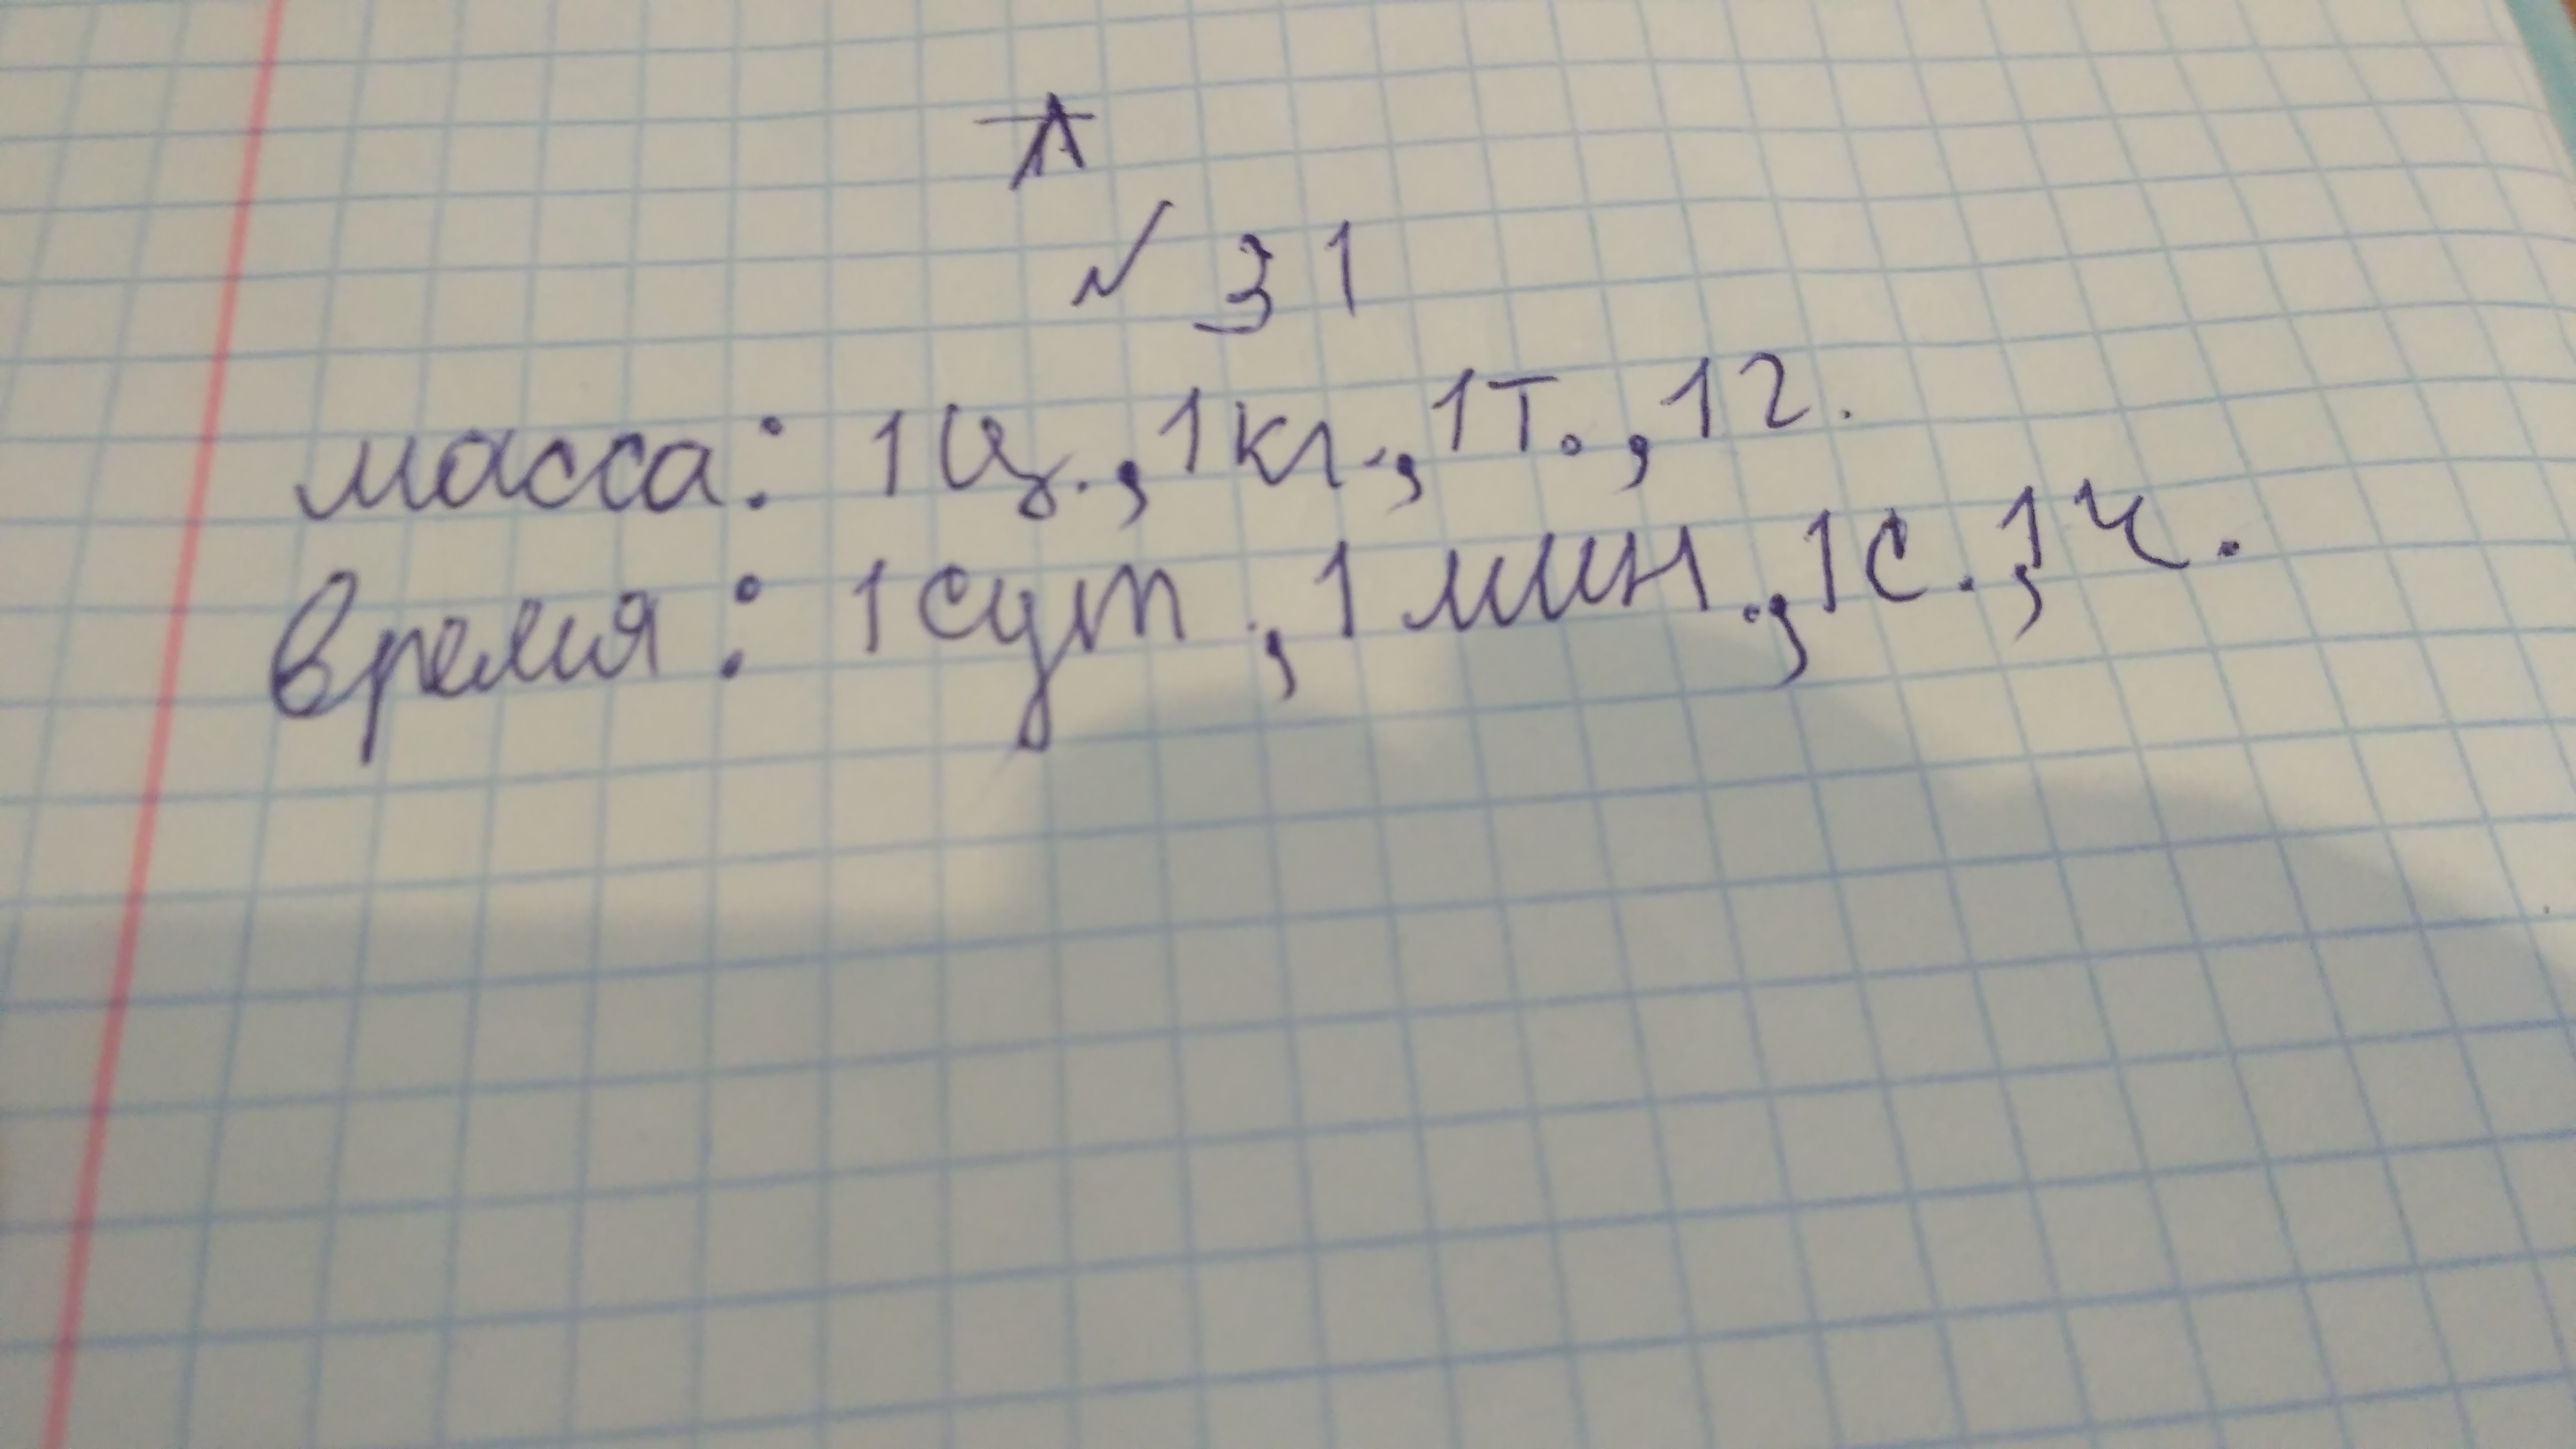 № 31
масса: 1ц., 1кг., 1т., 1г.
время: 1сут., 1мин., 1с., 1ч.